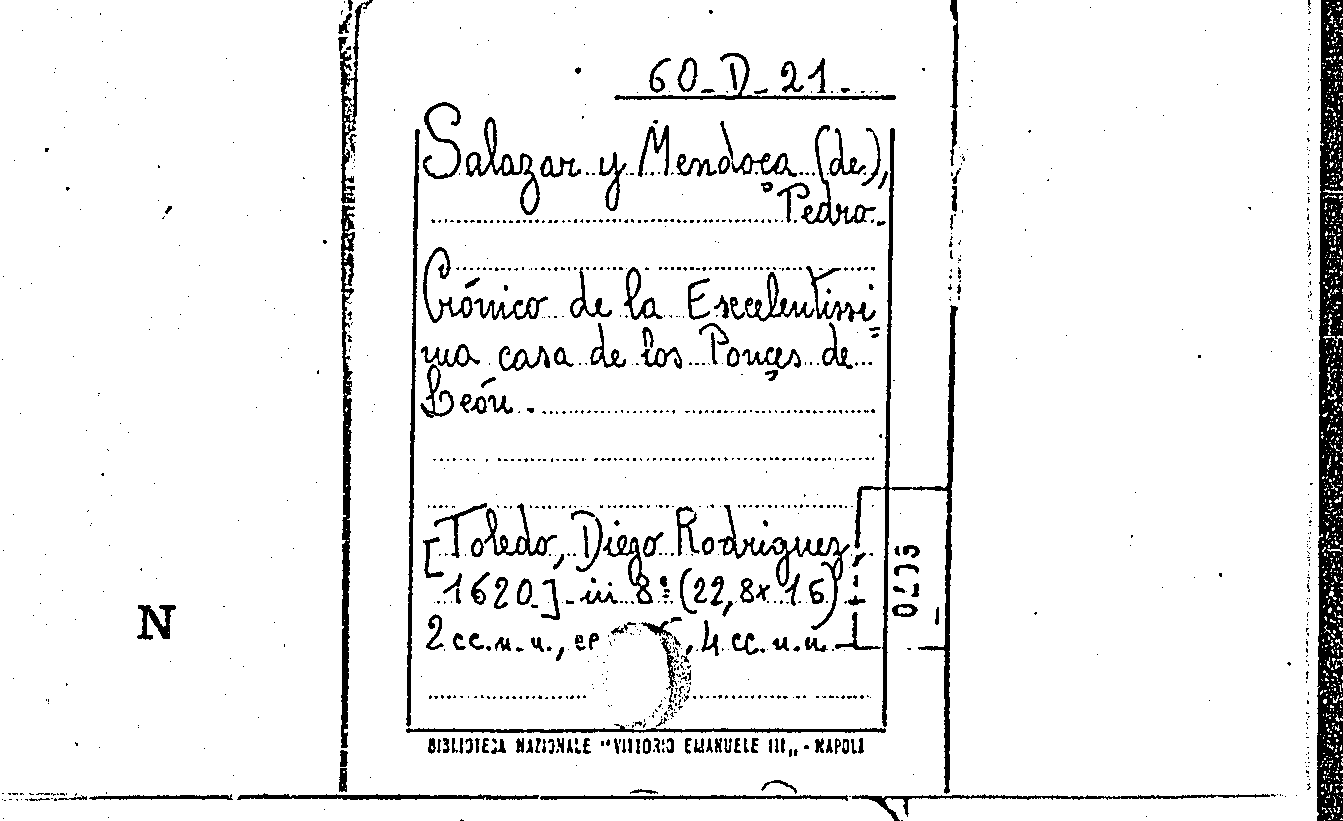 60_D_21.
Salazar y Mendoça (de),
Pedro.
Crónico de la Escelentissi=
ma casa de los Ponçes de
León.
[Toledo, Diego Rodriguez,
1620.] in 8º (22,8x16)
2 cc.n.n., , 4 cc.n.n.
BIBLIOTECA NAZIONALE "VITTORIO EMANUELE III„ - NAPOLI
N